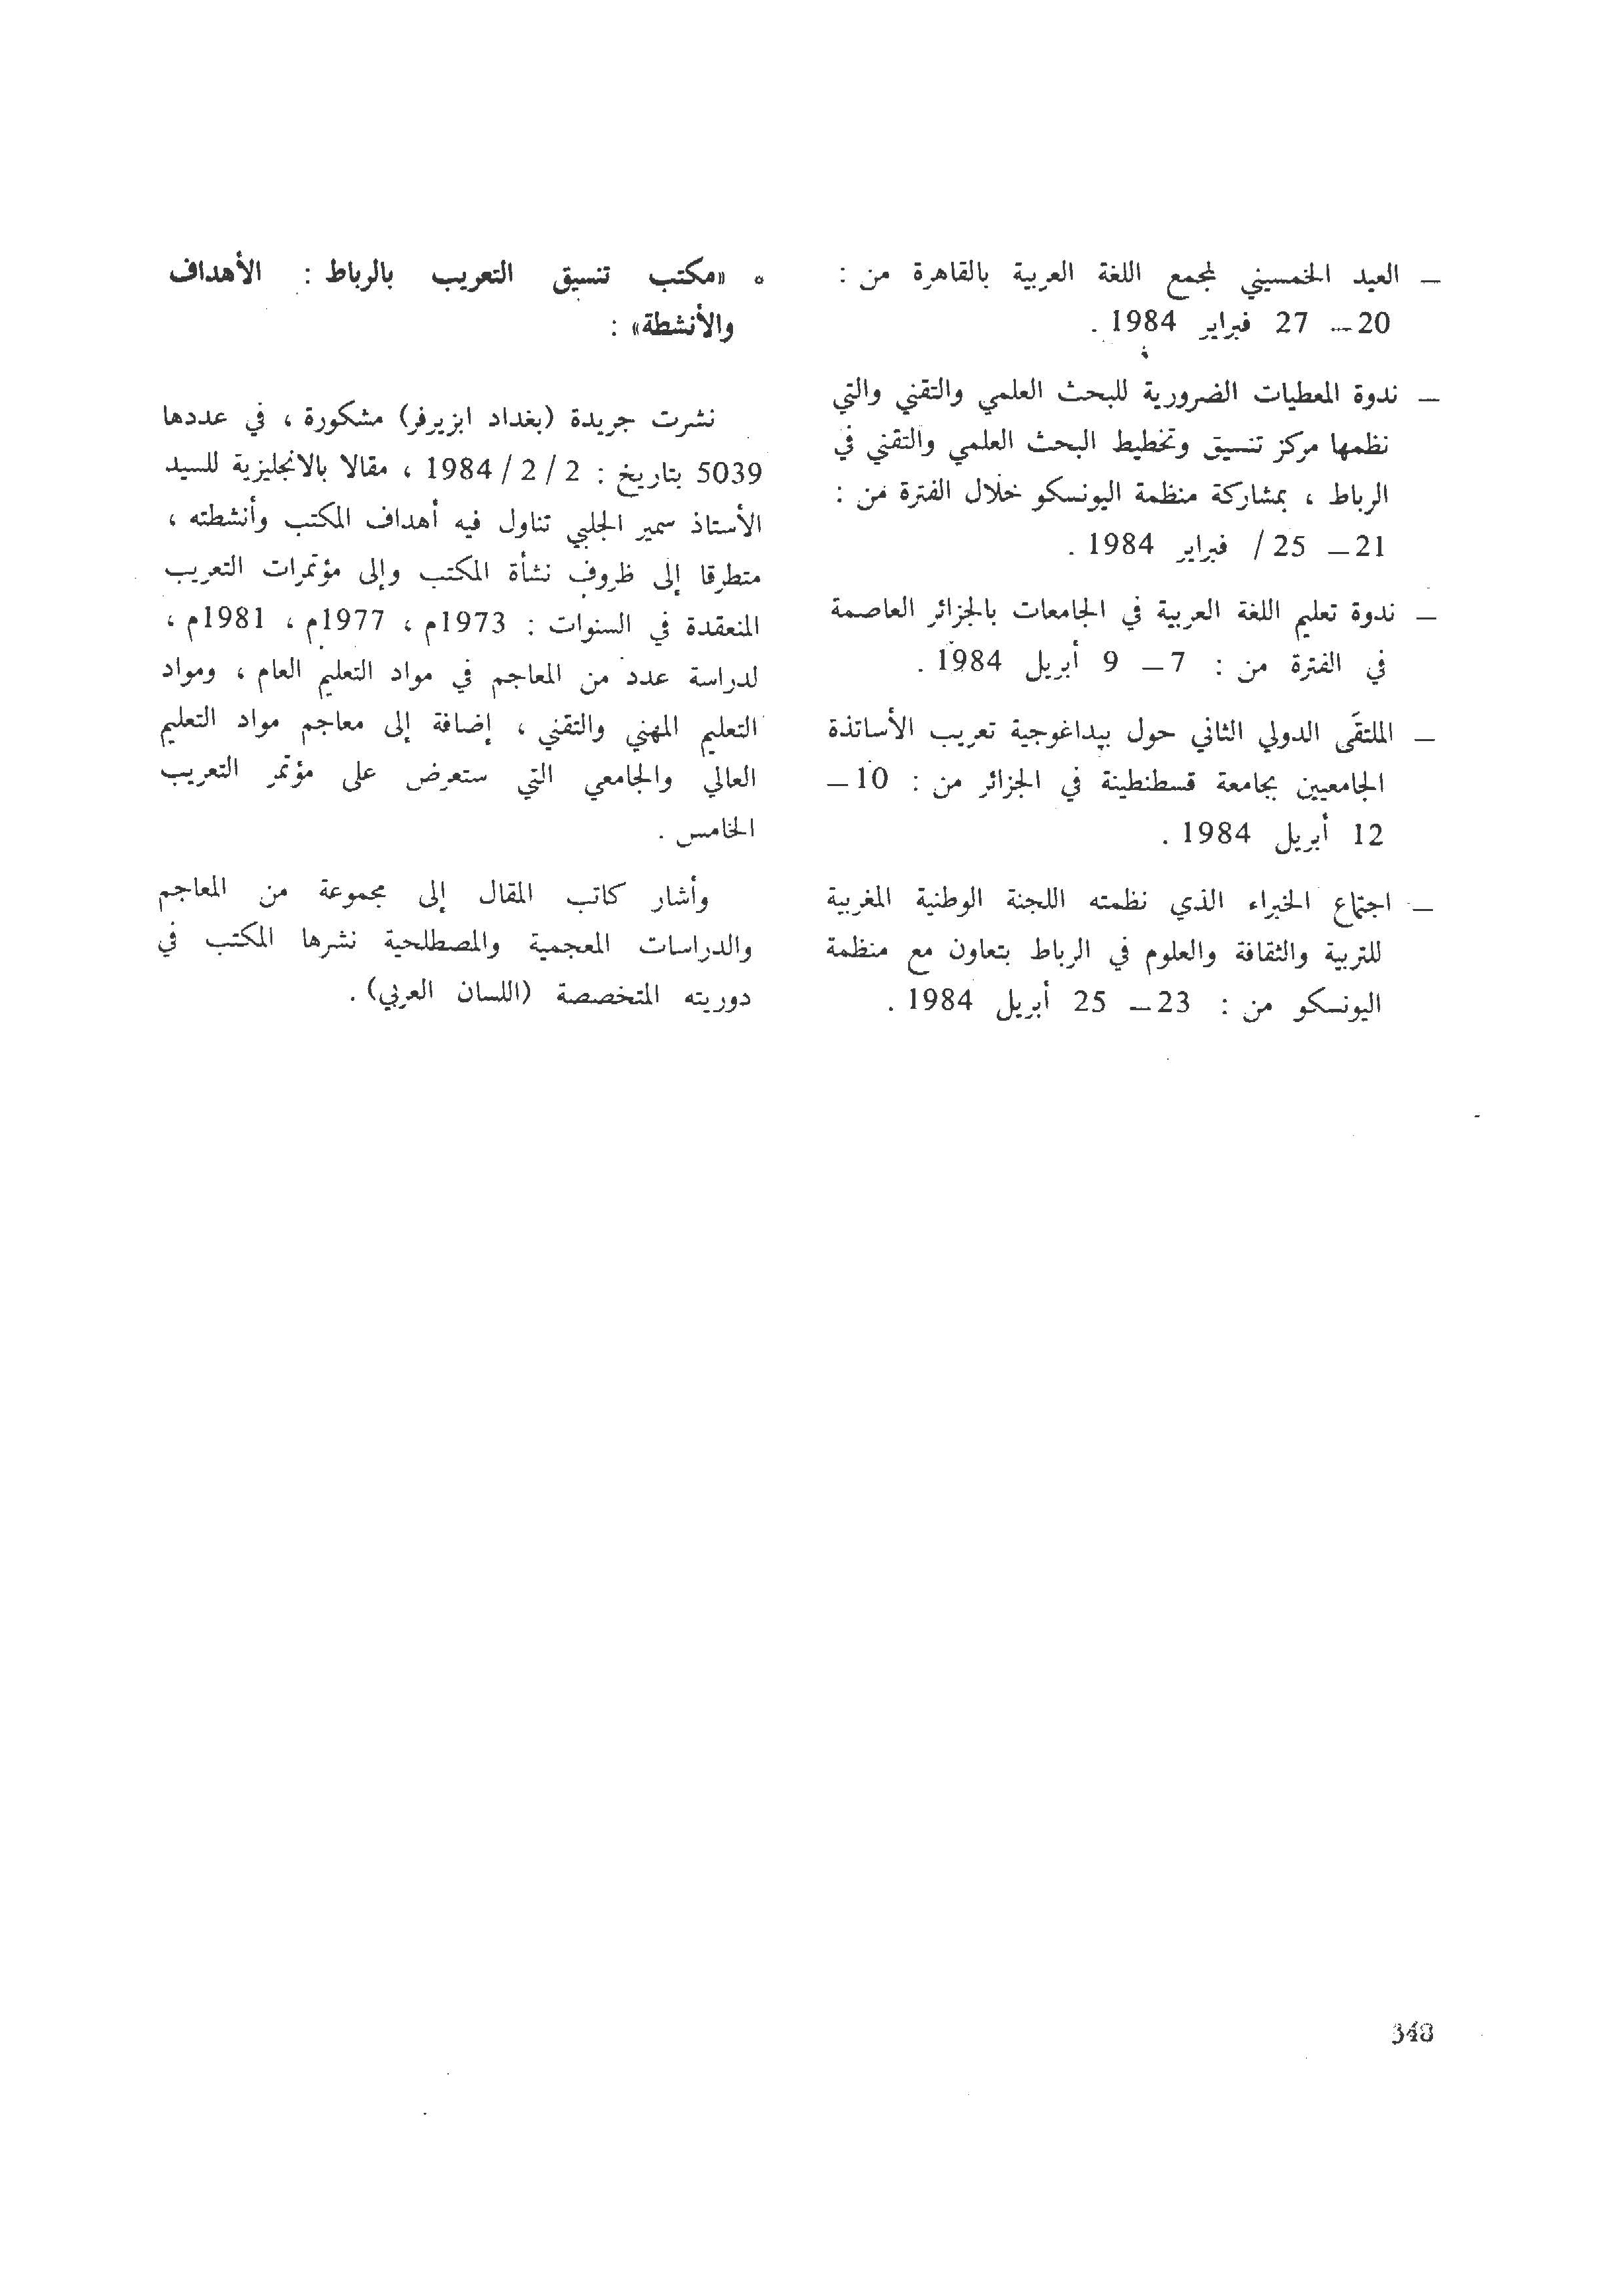 ــ العيد الخمسيني لمجمع اللغة العربية بالقاهرة من :
20ــ 27 فبراير 1984 .
ــ ندوة المعطيات الضرورية للبحث العلمي والتقني والتي
نظمها مركز تنسيق وتخطيط البحث العلمي والتقني في
الرباط ، بمشاركة منظمة اليونسكو خلال الفترة من :
21ــ 25 / فبراير 1984 .
ــ ندوة تعليم اللغة العربية في الجامعات بالجزائر العاصمة
في الفترة من : 7 ــ 9 أبريل 1984 .
ــ الملتقى الدولي الثاني حول بيداغوجية تعريب الأساتذة
الجامعيين بجامعة قسطنطينة في الجزائر من : 10ــ
12 أبريل 1984 .
ــ اجتماع الخبراء الذي نظمته اللجنة الوطنية المغربية
للتربية والثقافة والعلوم في الرباط بتعاون مع منظمة
اليونسكو من : 23ــ 25 أبريل 1984 .
° «مكتب تنسيق التعريب بالرباط : الأهداف
والأنشطة» :
نشرت جريدة (بغداد ابزيرفر) مشكورة ، في عددها
5039 بتاريخ : 2 / 2 / 1984 ، مقالا بالانجليزية للسيد
الأستاذ سمير الجلبي تناول فيه أهداف المكتب وأنشطته ،
متطرقا إلى ظروف نشأة المكتب وإلى مؤتمرات التعريب
المنعقدة في السنوات : 1973م ، 1977م ، 1981م ،
لدراسة عدد من المعاجم في مواد التعليم العام ، ومواد
التعليم المهني والتقني ، إضافة إلى معاجم مواد التعليم
العالي والجامعي التي ستعرض على مؤتمر التعريب
الخامس .
وأشار كاتب المقال إلى مجموعة من المعاجم
والدراسات المعجمية والمصطلحية نشرها المكتب في
دوريته المتخصصة (اللسان العربي) .
348